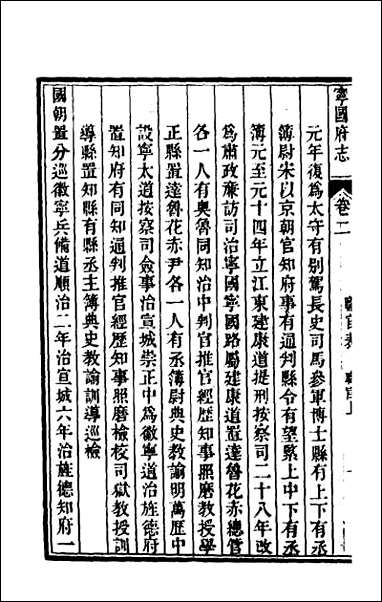 寧國府志
卷二
元年復爲太守有别駕長史司馬參軍博士縣有上下有丞
簿尉宋以京朝官知府事有通判縣令有望緊上中下有丞
簿元至元十四年立江東建康道提刑按察司二十八年改
爲肅政廉訪司治寧國寧國路屬建康道置達魯花赤總管
各一人有奥魯同知治中判官推官經歷知事照磨教授學
正縣置達魯花赤尹各一人有丞簿尉典史教諭明萬歷中
設寧太道按察司僉事治宣城崇正中爲徽寧道治旌德府
置知府有同知通判推官經歷知事照磨檢校司獄教授訓
導縣置知縣有縣丞主簿典史教諭訓導巡檢
國朝置分巡徽寧兵備道順治二年治宣城六年治旌德知府一